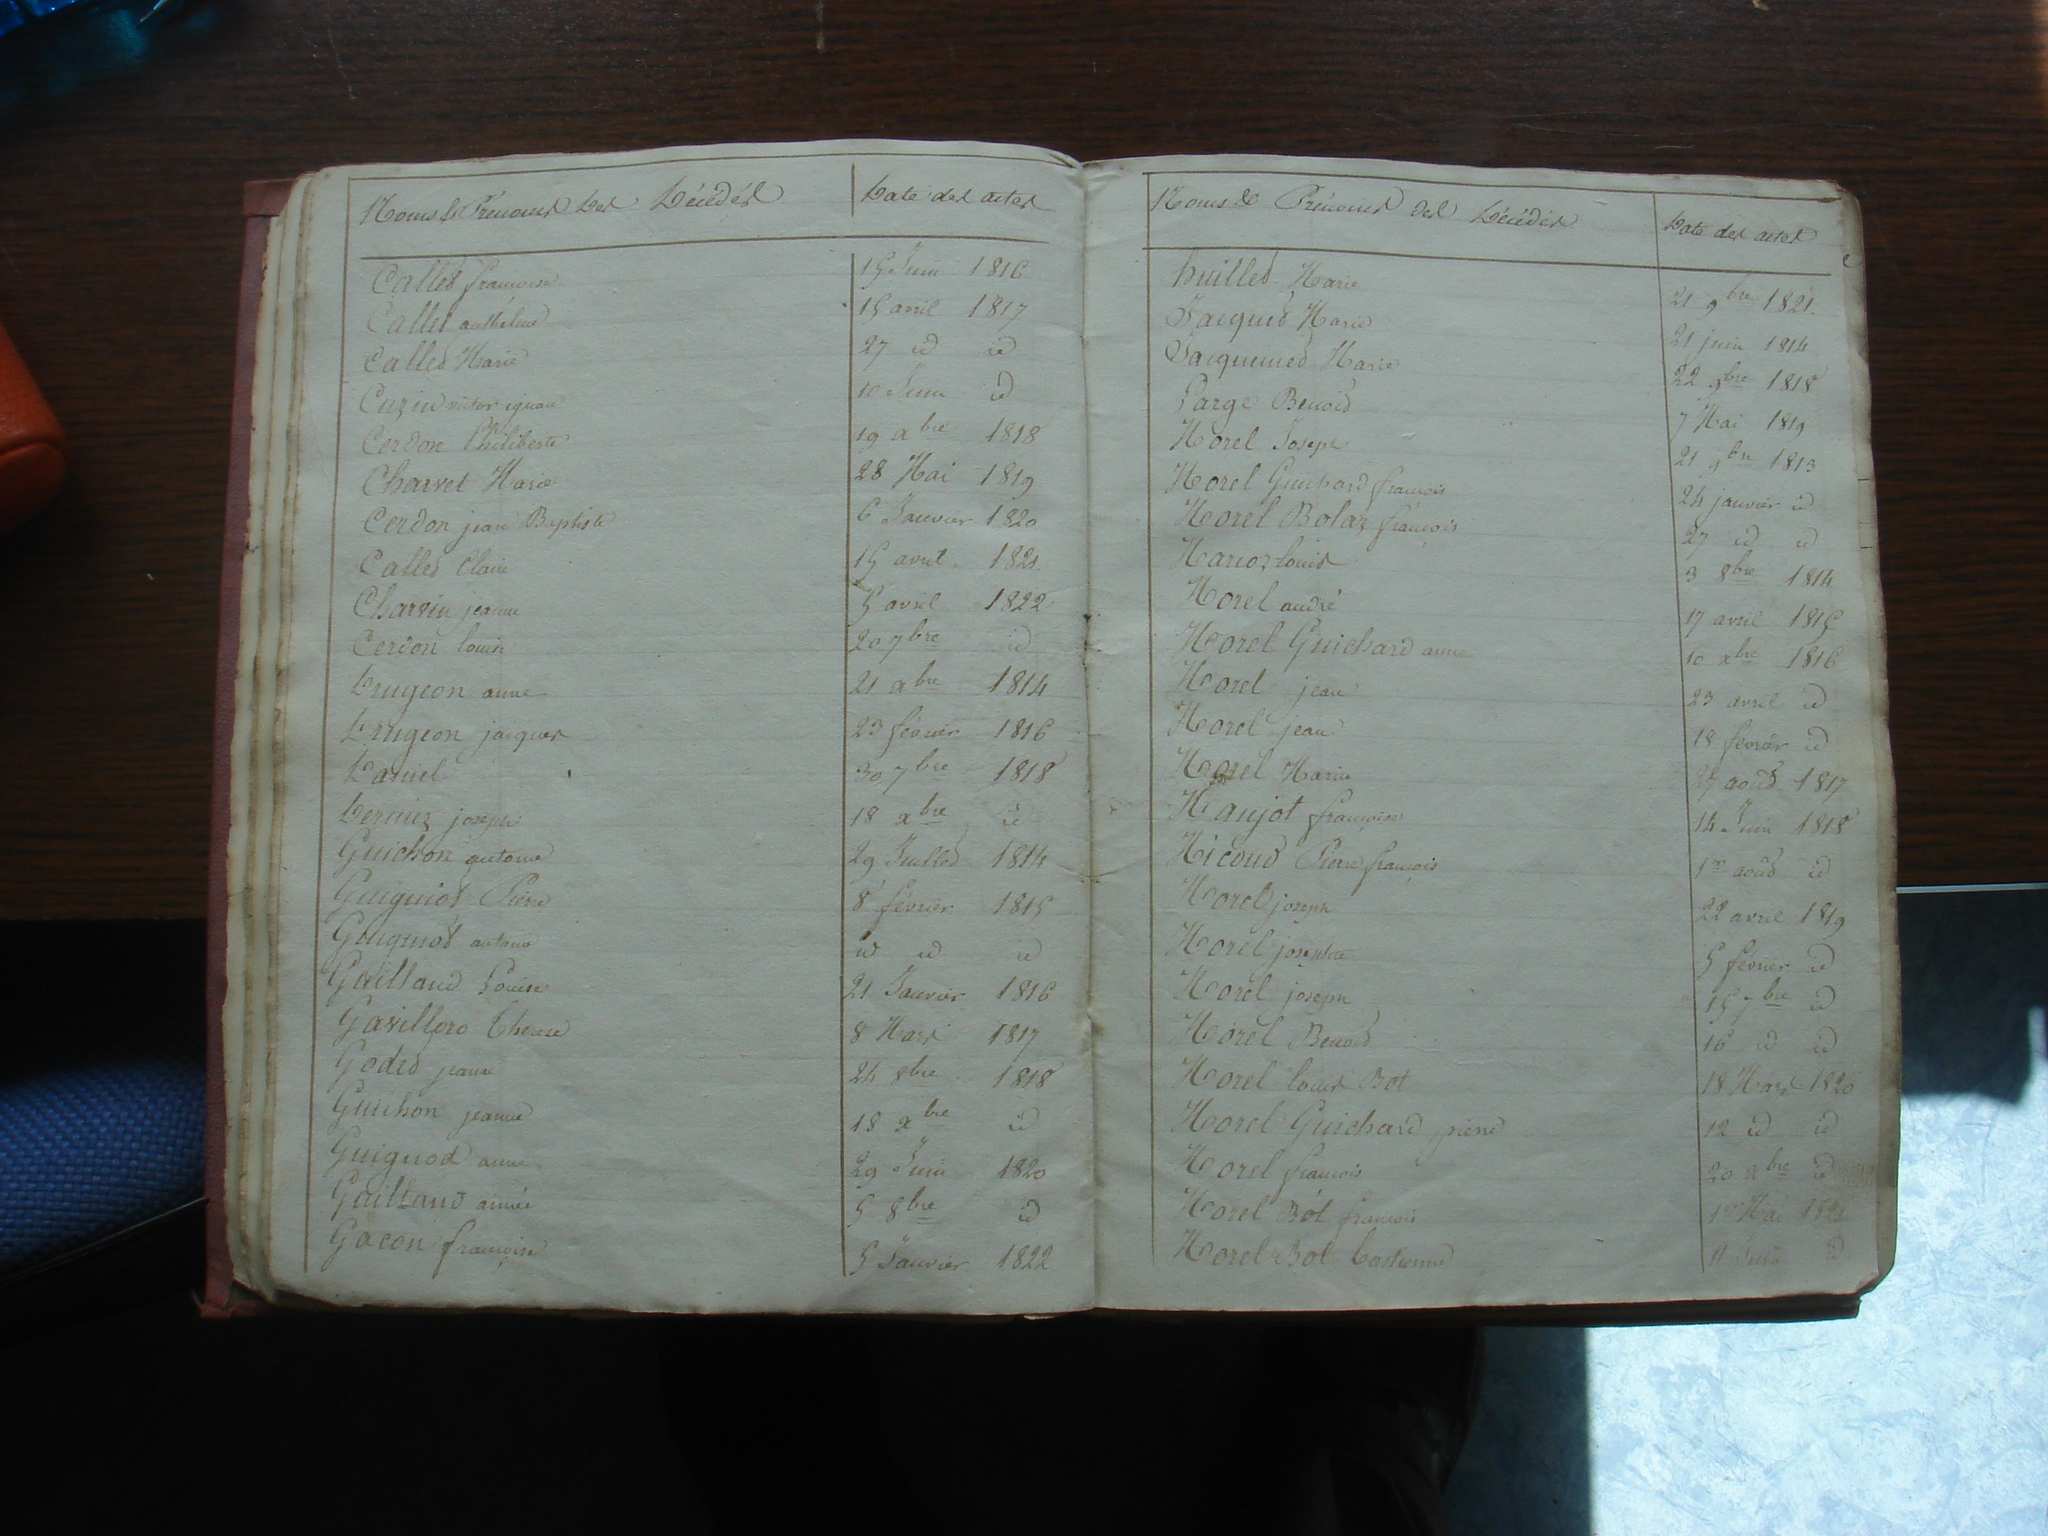 Noms & Prénoms des Décédés Date des actes
Callet françoise 15 Juin 1816
Callet anthelme 15 avril 1817
Callet Marie 27 id id
Cuzin victor 10 Juin id
Cerdon Philiberte 19 xbre 1818
Charvet Marie 28 Mai 1819
Cerdon jean Baptiste 6 Janvier 1820
Callet Claire 15 avril 1821
Charvin jeanne 5 avril 1822
Cerdon louise 20 7bre id
Drugeon anne 21 xbre 1814
Drugeon jacques 23 février 1816
Daniel 30 7bre 1818
joseph 18 xbre id
Guichon antoine 29 Juillet 1814
Guignot Pierre 8 février 1815
Guignot antoine id id id
Gailland Louise 21 Janvier 1816
Therese 8 Mars 1817
Godet jeanne 24 8bre 1818
Guichon jeanne 18 xbre id
Guignot anne 29 Juin 1820
Gailland aimée 5 8bre id
Gacon françoise 5 Janvier 1822
Noms & Prénoms des Décédés Date des actes
huillet Marie 21 9bre 1821
Jacquet Marie 21 juin 1814
Jacquemet Marie 22 9bre 1818
Large Benoit 7 Mai 1819
Morel Joseph 21 9bre 1813
Morel Guichard françois 24 janvier id
Morel Bolaz françois 27 id id
Marioz louis 3 8bre 1814
Morel andré 17 avril 1815
Morel Guichard anne 10 xbre 1816
Morel jean 23 avril id
Morel jean 18 février id
Morel Marie 27 août 1817
Maujot françoise 14 Juin 1818
Micoud Pierre françois 1er août id
Morel joseph 22 avril 1819
Morel josephte 5 février id
Morel joseph 15 7bre id
Morel Benoit 16 id id
Morel louis Bot 18 Mars 1820
Morel Guichard pierre 12 id id
Morel françois 20 xbre id
Morel Bot françois 1er Mai 1821
Morel Bot 11 id